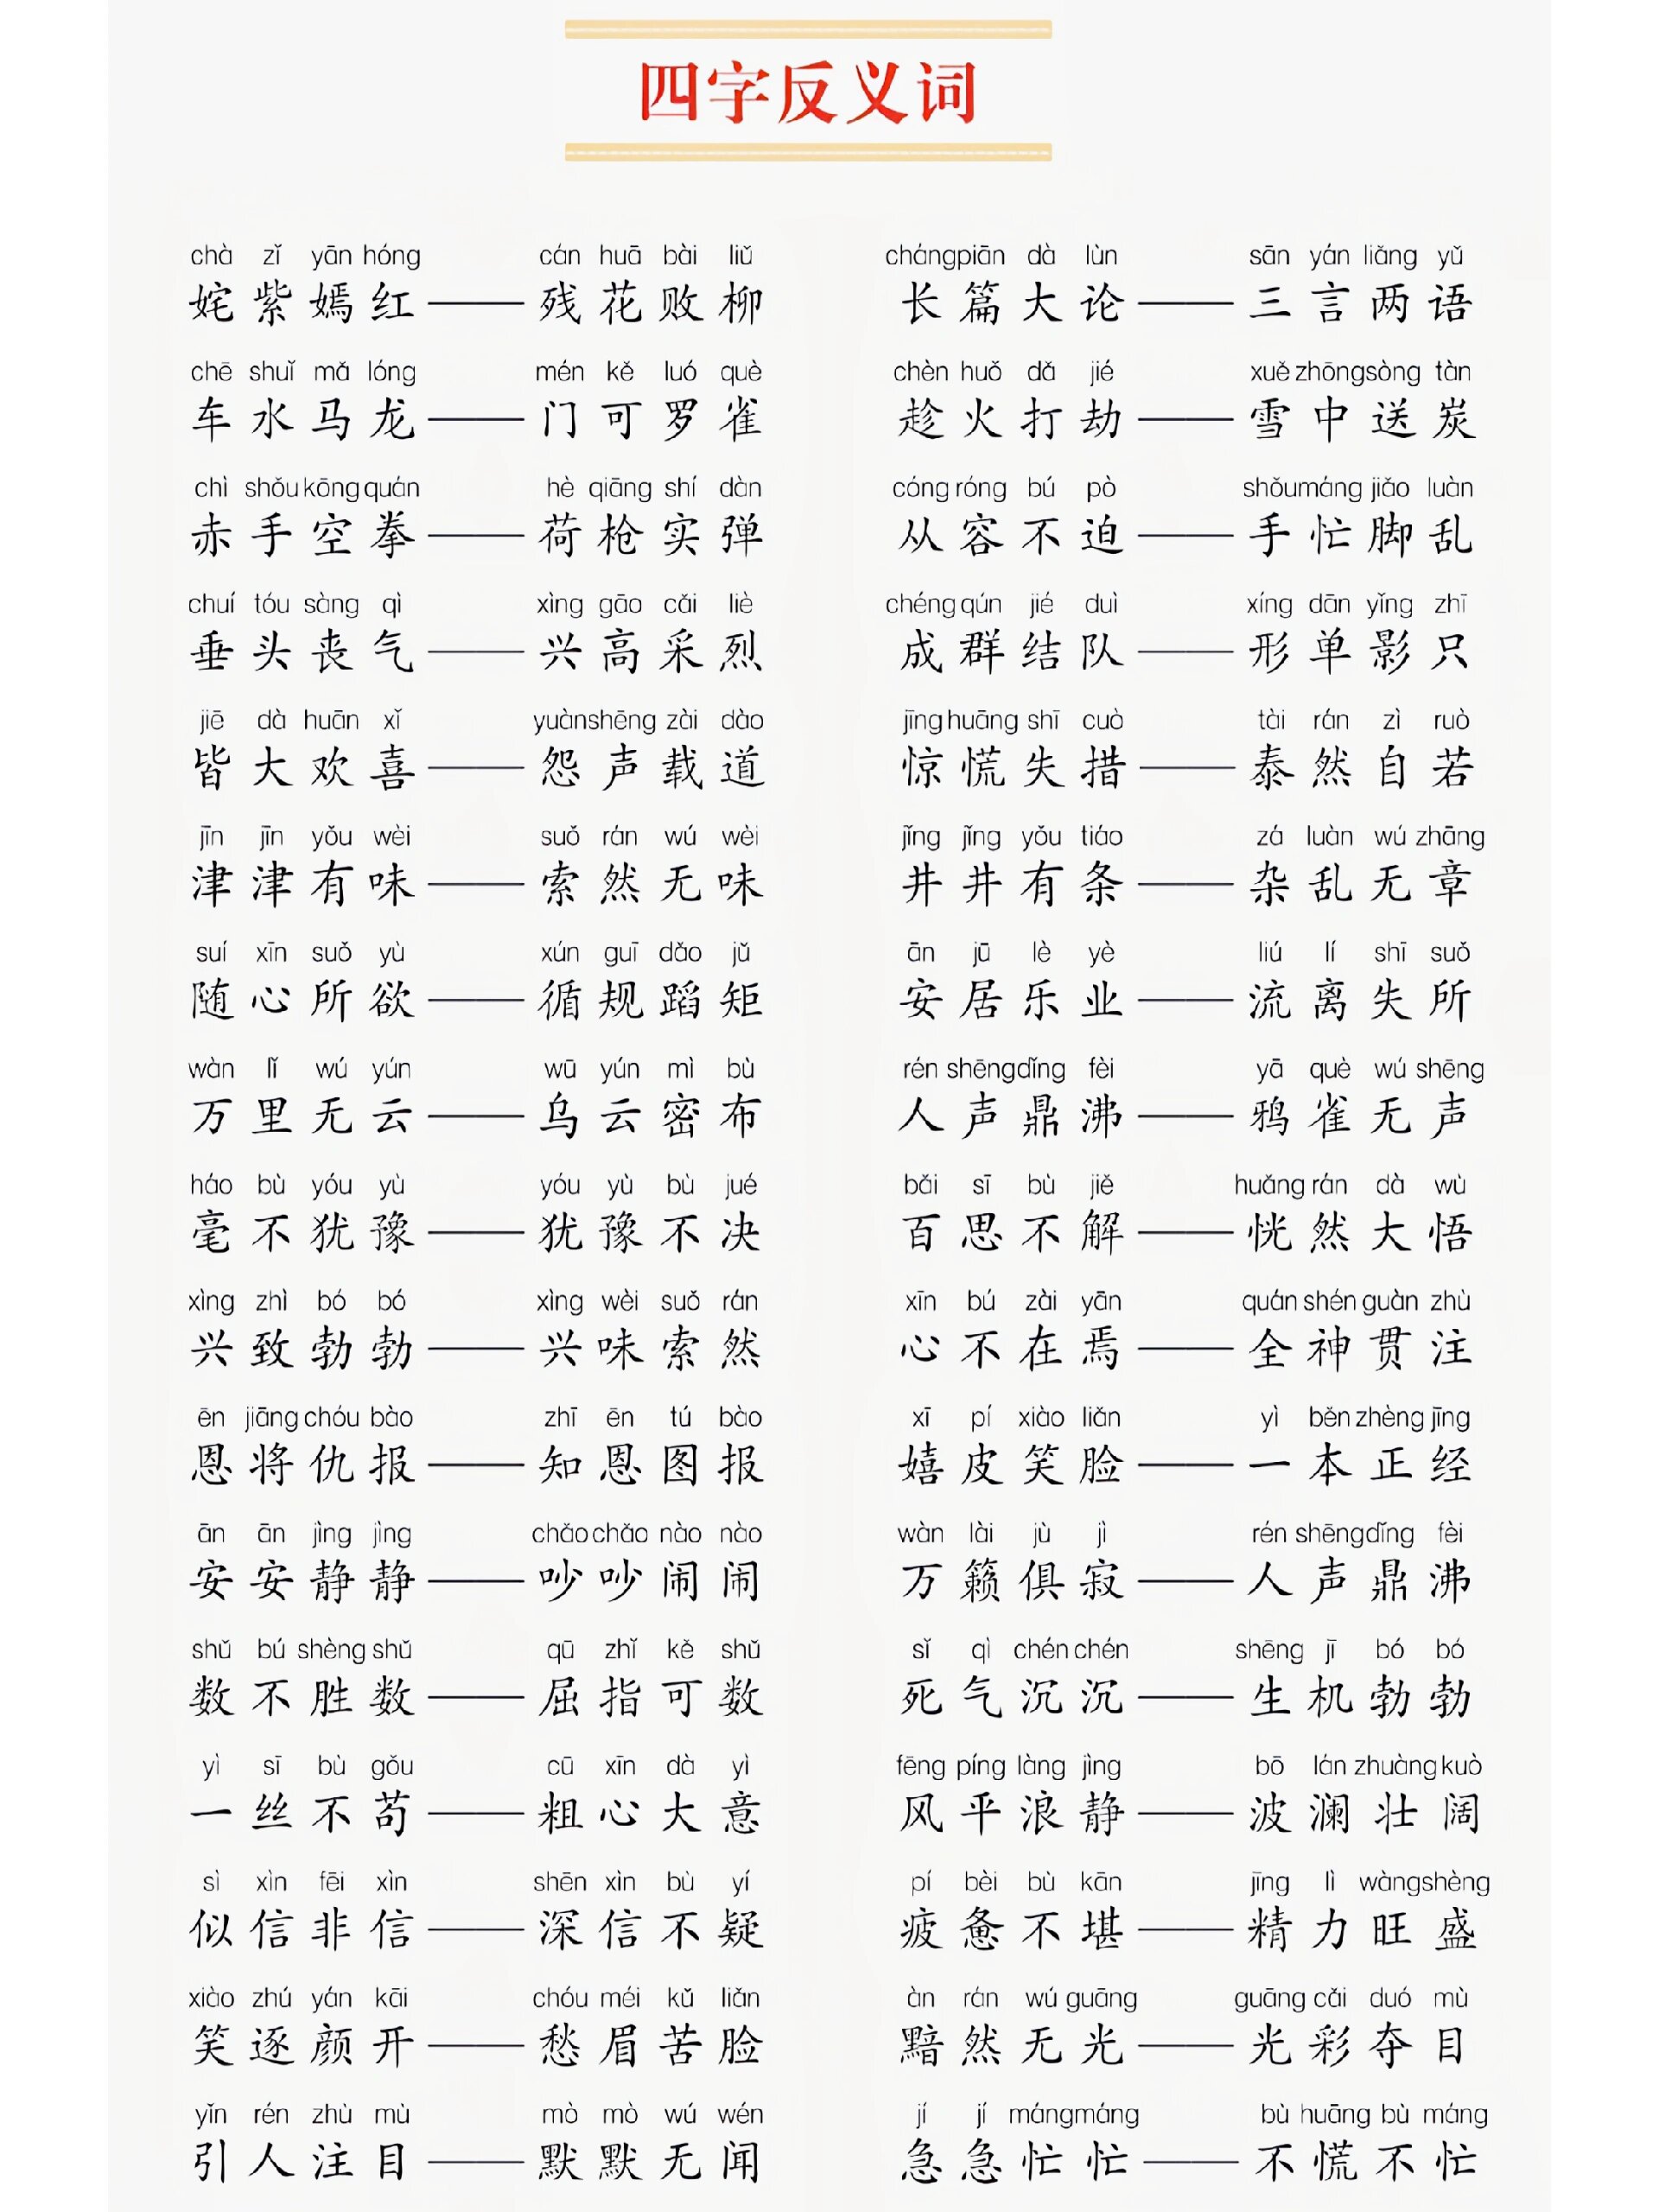 四字反义词
chà zǐ yān hóng cán huā bài liǔ cháng piān dà lùn sān yán liǎng yǔ
姹紫嫣红——残花败柳 长篇大论——三言两语
chē shuǐ mǎ lóng mén kě luó què chèn huǒ dǎ jié xuě zhōng sòng tàn
车水马龙——门可罗雀 趁火打劫——雪中送炭
chì shǒu kōng quán hè qiāng shí dàn cóng róng bú pò shǒu máng jiǎo luàn
赤手空拳——荷枪实弹 从容不迫——手忙脚乱
chuí tóu sàng qì xìng gāo cǎi liè chéng qún jié duì xíng dān yǐng zhī
垂头丧气——兴高采烈 成群结队——形单影只
jiē dà huān xǐ yuàn shēng zài dào jīng huāng shī cuò tài rán zì ruò
皆大欢喜——怨声载道 惊慌失措——泰然自若
jīn jīn yǒu wèi suǒ rán wú wèi jǐng jǐng yǒu tiáo zá luàn wú zhāng
津津有味——索然无味 井井有条——杂乱无章
suí xīn suǒ yù xún guī dǎo jǔ ān jū lè yè liú lí shī suǒ
随心所欲——循规蹈矩 安居乐业——流离失所
wàn lǐ wú yún wū yún mì bù rén shēng dǐng fèi yā què wú shēng
万里无云——乌云密布 人声鼎沸——鸦雀无声
háo bù yóu yù yóu yù bù jué bǎi sī bù jiě huǎng rán dà wù
毫不犹豫——犹豫不决 百思不解——恍然大悟
xìng zhì bó bó xìng wèi suǒ rán xīn bú zài yān quán shén guàn zhù
兴致勃勃——兴味索然 心不在焉——全神贯注
ēn jiāng chóu bào zhī ēn tú bào xī pí xiào liǎn yì běn zhèng jīng
恩将仇报——知恩图报 嬉皮笑脸——一本正经
ān ān jìng jìng chǎo chǎo nào nào wàn lài jù jì rén shēng dǐng fèi
安安静静——吵吵闹闹 万籁俱寂——人声鼎沸
shǔ bú shèng shǔ qū zhǐ kě shǔ sǐ qì chén chén shēng jī bó bó
数不胜数——屈指可数 死气沉沉——生机勃勃
yì sī bù gǒu cū xīn dà yì fēng píng làng jìng bō lán zhuàng kuò
一丝不苟——粗心大意 风平浪静——波澜壮阔
sì xìn fēi xìn shēn xìn bù yí pí bèi bù kān jīng lì wàng shèng
似信非信——深信不疑 疲惫不堪——精力旺盛
xiào zhú yán kāi chóu méi kǔ liǎn àn rán wú guāng guāng cǎi duó mù
笑逐颜开——愁眉苦脸 黯然无光——光彩夺目
yǐn rén zhù mù mò mò wú wén jí jí máng máng bù huāng bù máng
引人注目——默默无闻 急急忙忙——不慌不忙